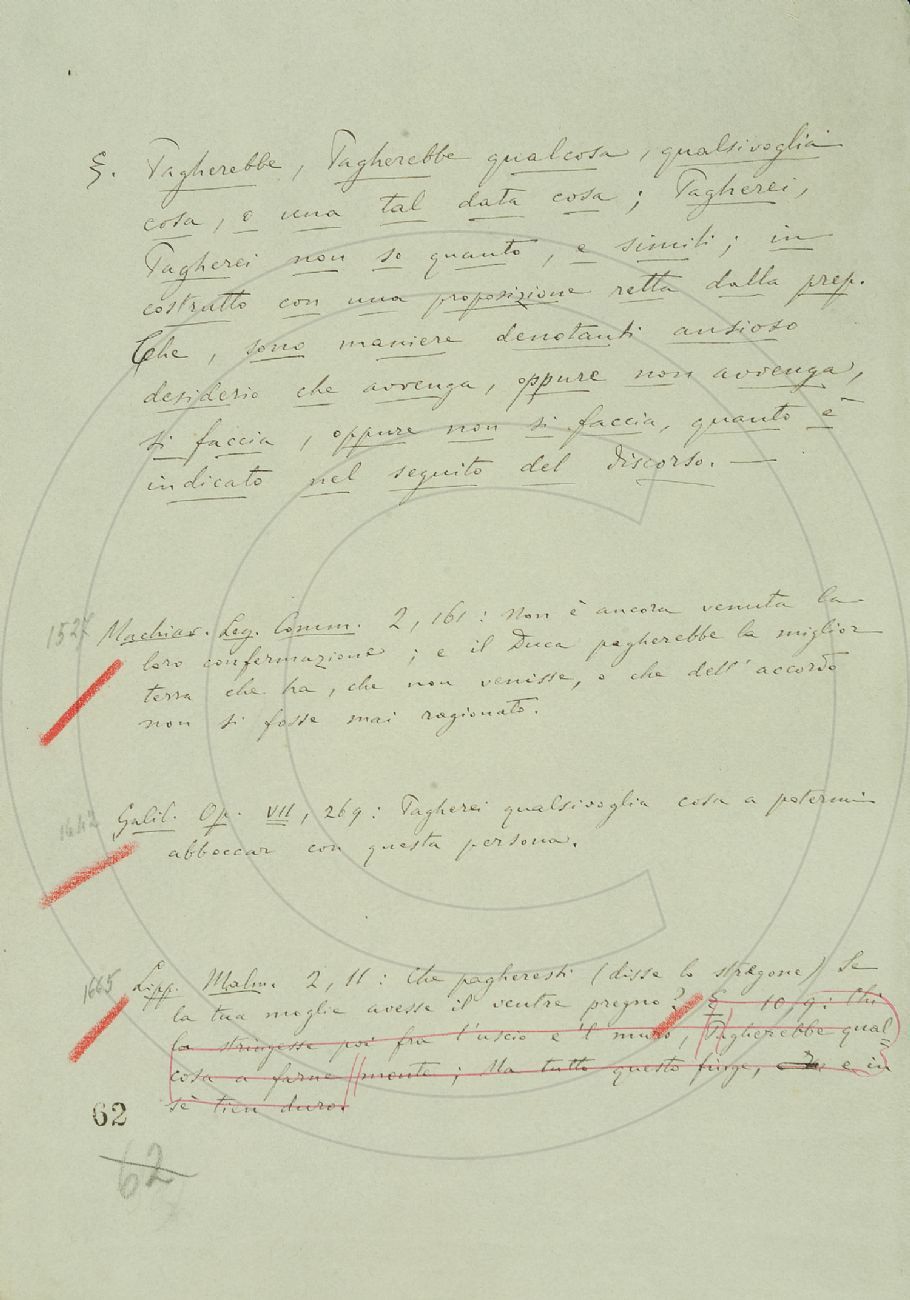 §. Pagherebbe, Pagherebbe qualcosa, qualsivoglia
cosa, o una tal data cosa; Pagherei,
Pagherei non so quanto, e simili; in
costrutto con una proposizione retta dalla prep.
Che, sono maniere denotanti ansioso
desiderio che avvenga, oppure non avvenga,
si faccia, oppure non si faccia, quanto è
indicato nel seguito del discorso. —
1527 Machiav. Leg. Comm. 2, 161: Non è ancora venuta la
loro confermazione; e il Duca pagherebbe la miglior
terra che ha, che non venisse, o che dell'accordo
non si fosse mai ragionato.
1642 Galil. Op. VII, 269: Pagherei qualsivoglia cosa a potermi
abboccar con questa persona.
1665 Lipp. Malm. 2, 11: Che pagheresti (disse lo stregone) Se
la tua moglie avesse il ventre pregno? E 10, 9: Chi
la stringesse poi fra l'uscio e 'l muro, Pagherebbe qual=
cosa a farne monte; Ma tutto questo finge, e in
sè tien duro.
62
62